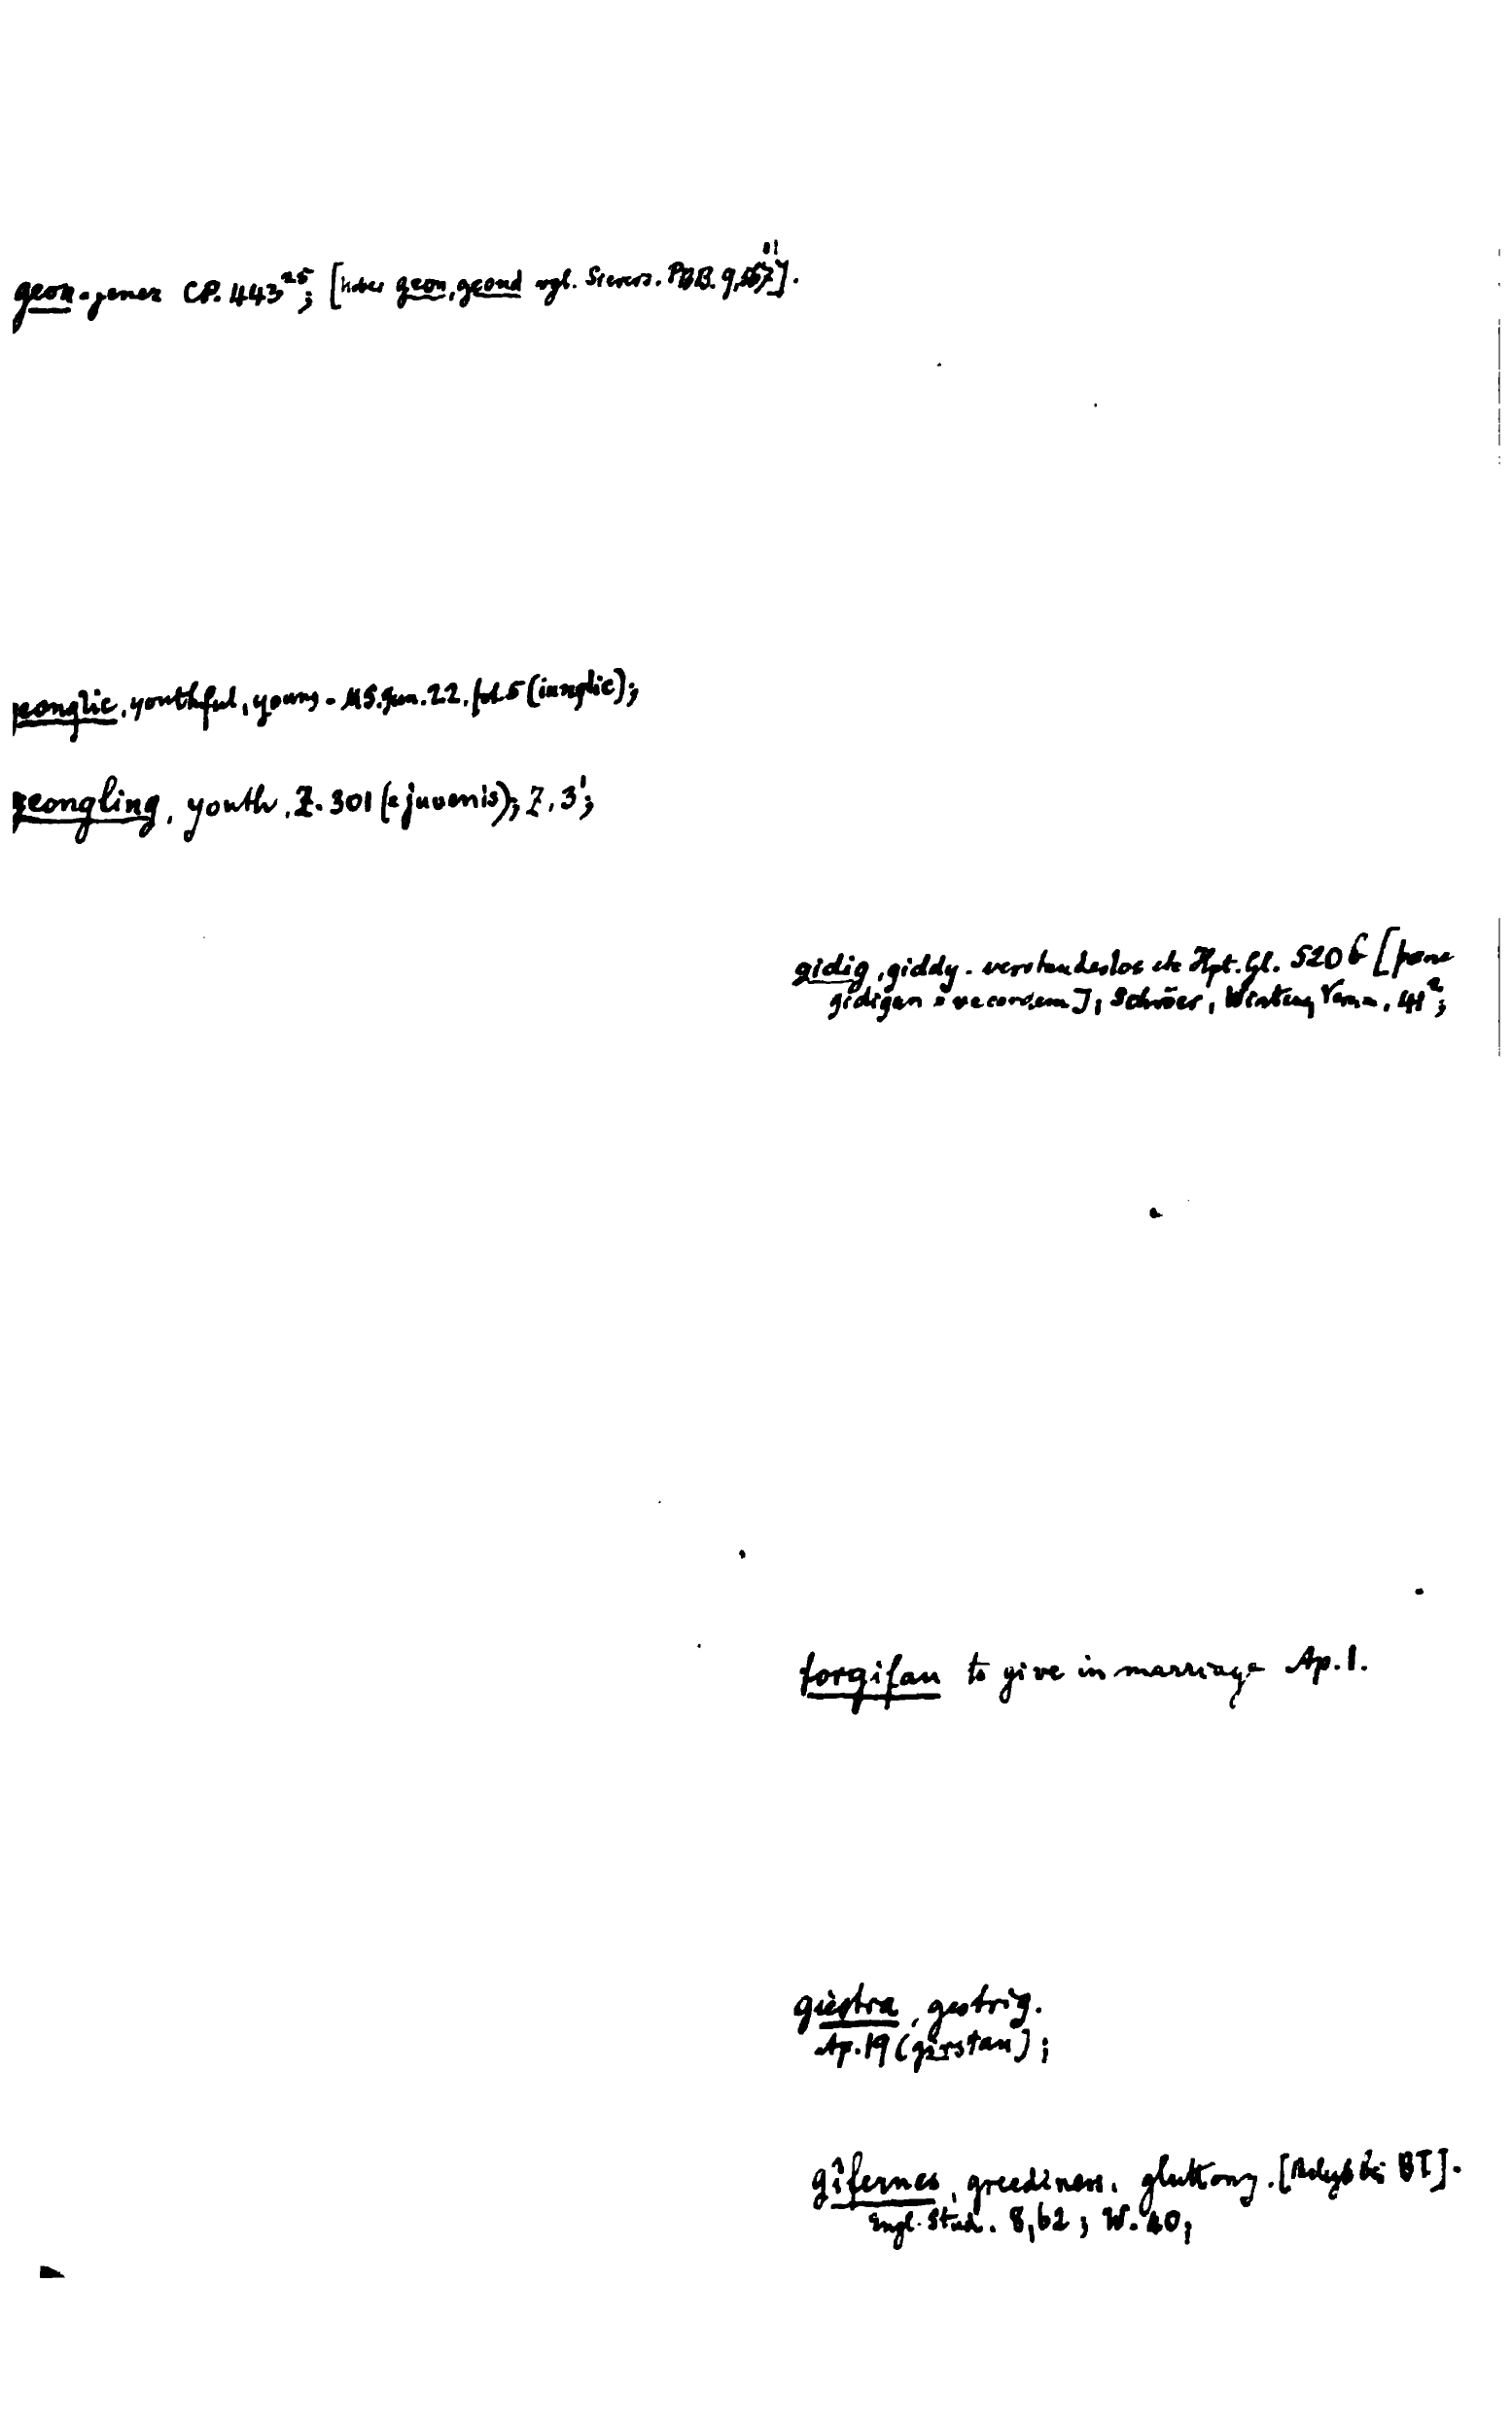 geon - jener CP. 443²⁵; [über geon, geond vgl. Sievers. PBB. 9,567].
geonglic, youthful, young - MS. Jun. 22. fol. 5 (iunglic);
geongling, youth, Z. 301 (= juvenis); Z, 3¹;
gidig, giddy - verstandeslos etc Hpt. Gl. 520 b [þone
gidigan = vecordem]; Schröer, Winteney Vers., 41²;
forgifan to give in marriage Ap. 1.
giestra, gestrig.
Ap. 19 (girstan);
gîfernes, greediness, gluttony. [Belege bei BT].
Engl. Stud. 8,62; W. 40;